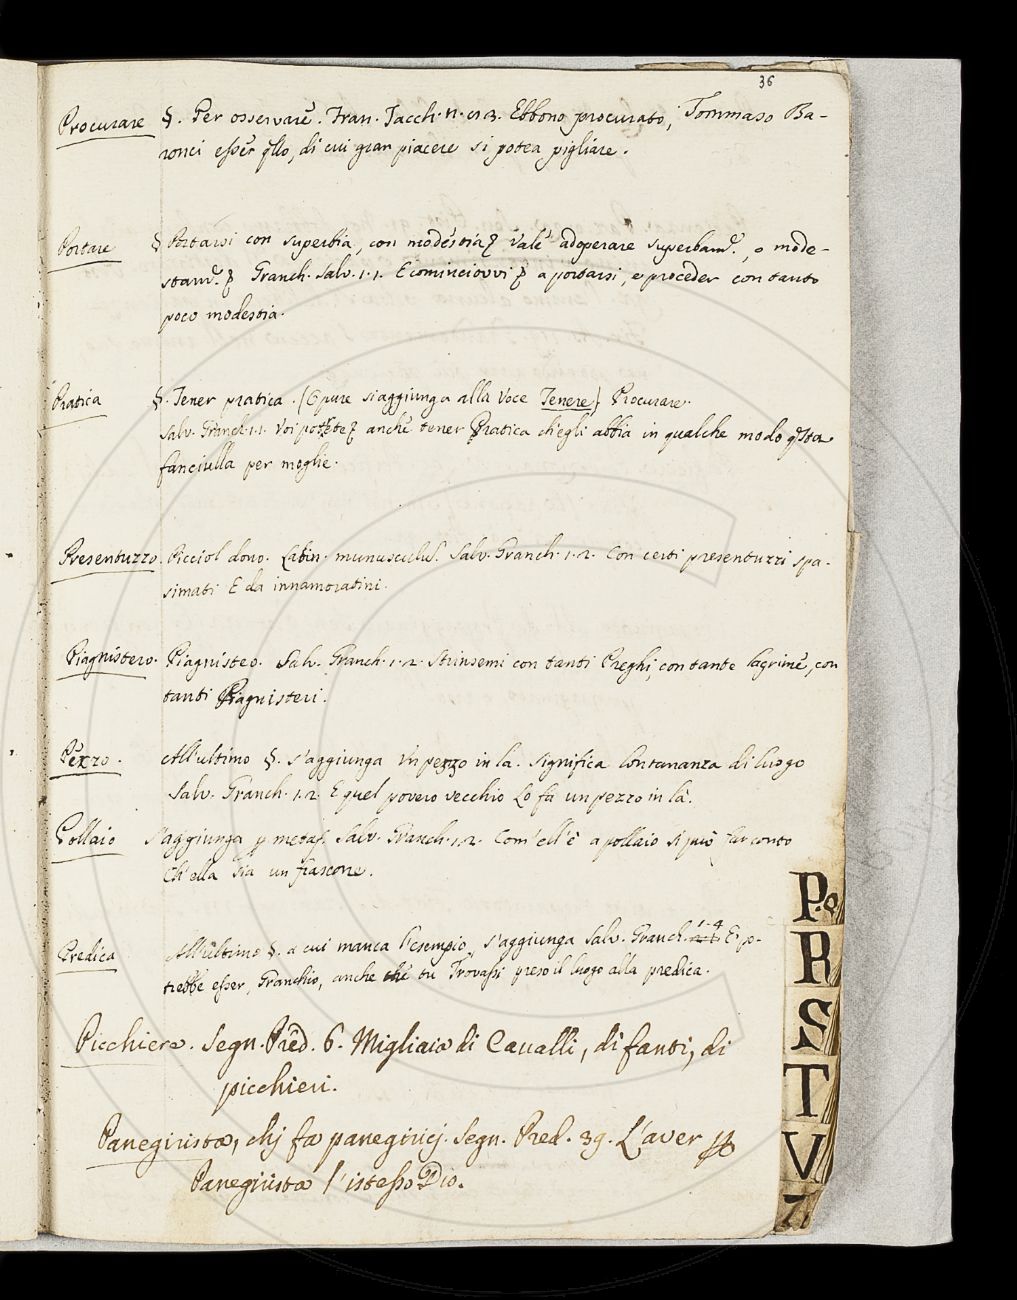 36
Procurare §. Per osservare. Fran. Sacch. n. 193. Ebbono procurato, Tommaso Ba-
ronci esser qllo, di cui gran piacere si potea pigliare.
Portare § Portarsi con superbia, con modestia vale adoperare superbam., o mode-
stam. Granch. Salv. 1.1. E cominciovvi a portarsi, e proceder con tanto
poco modestia.
Pratica §. Tener pratica. (Opure s'aggiunga alla Voce Tenere) Procurare.
Salv. Granch. 1.1. Voi potete anche tener Pratica ch'egli abbia in qualche modo qsta
fanciulla per moglie.
Presentuzzo. Picciol dono. Latin. munusculus. Salv. Granch. 1.2. Con certi presentuzzi spa-
simati E da innamoratini.
Piagnistero. Piagnisteo. Salv. Granch. 1.2. Strinsemi con tanti Preghi, con tante lagrime, con
tanti Piagnisteri.
Pezzo. All'ultimo §. s'aggiunga Un pezzo in la. significa lontananza di luogo
Salv. Granch. 1.2. E quel povero vecchio Lo fa un pezzo in là.
Pollaio S'aggiunga p metaf. Salv. Granch. 1.2. Com'ell'è a pollaio Si può far conto
Ch'ella sia un fiascone.
Predica All'ultimo §. a cui manca l'esempio, s'aggiunga Salv. Granch. 1.4 E' po-
trebbe esser, Granchio, anche che tu Trovassi preso il luogo alla predica.
Picchiere. Segn. Pred. 6. Migliaia di Cavalli, di fanti, di
picchieri.
Panegirista, chi fa panegirici. Segn. Pred. 39. L'aver p
Panegirista l'istesso Dio.
P.Q
R
S
T
V
Z